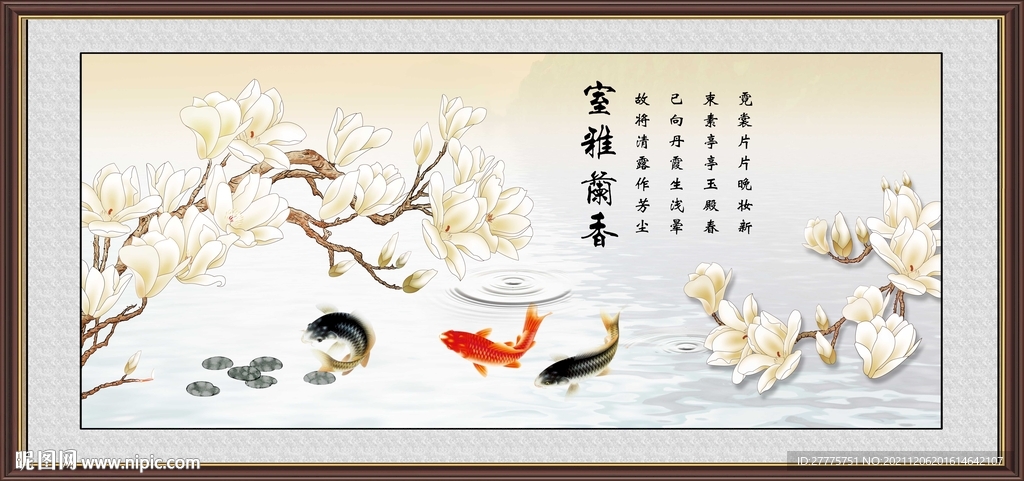 室雅蘭香
霓裳片片晚妆新
束素亭亭玉殿春
已向丹霞生浅晕
故将清露作芳尘
昵图网 www.nipic.com
ID:27775751 NO:20211206201614642107